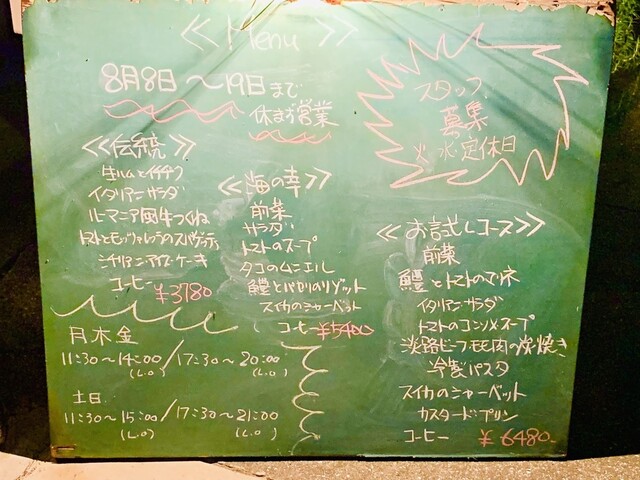 ≪Menu≫
8月8日〜19日まで
休まず営業
スタッフ
募集
火、水・定休日
≪伝統≫
生ハムとイチヂク
イタリアンサラダ
ルーマニア風牛つくね
トマトとモッツァレッラのスパゲッティ
シチリアンアイスケーキ
コーヒー ¥3780
≪海の幸≫
前菜
サラダ
トマトのスープ
タコのムニエル
鱧とバジルのリゾット
スイカのシャーベット
コーヒー ¥5400
≪お試しコース≫
前菜
鱧とトマトのマリネ
イタリアンサラダ
トマトのコンソメスープ
淡路ビーフモモ肉の炭焼き
冷製パスタ
スイカのシャーベット
カスタードプリン
コーヒー ¥6480-
月木金
11:30〜14:00/17:30〜20:00
(L.O) (L.O)
土日
11:30〜15:00/17:30〜21:00
(L.O) (L.O)